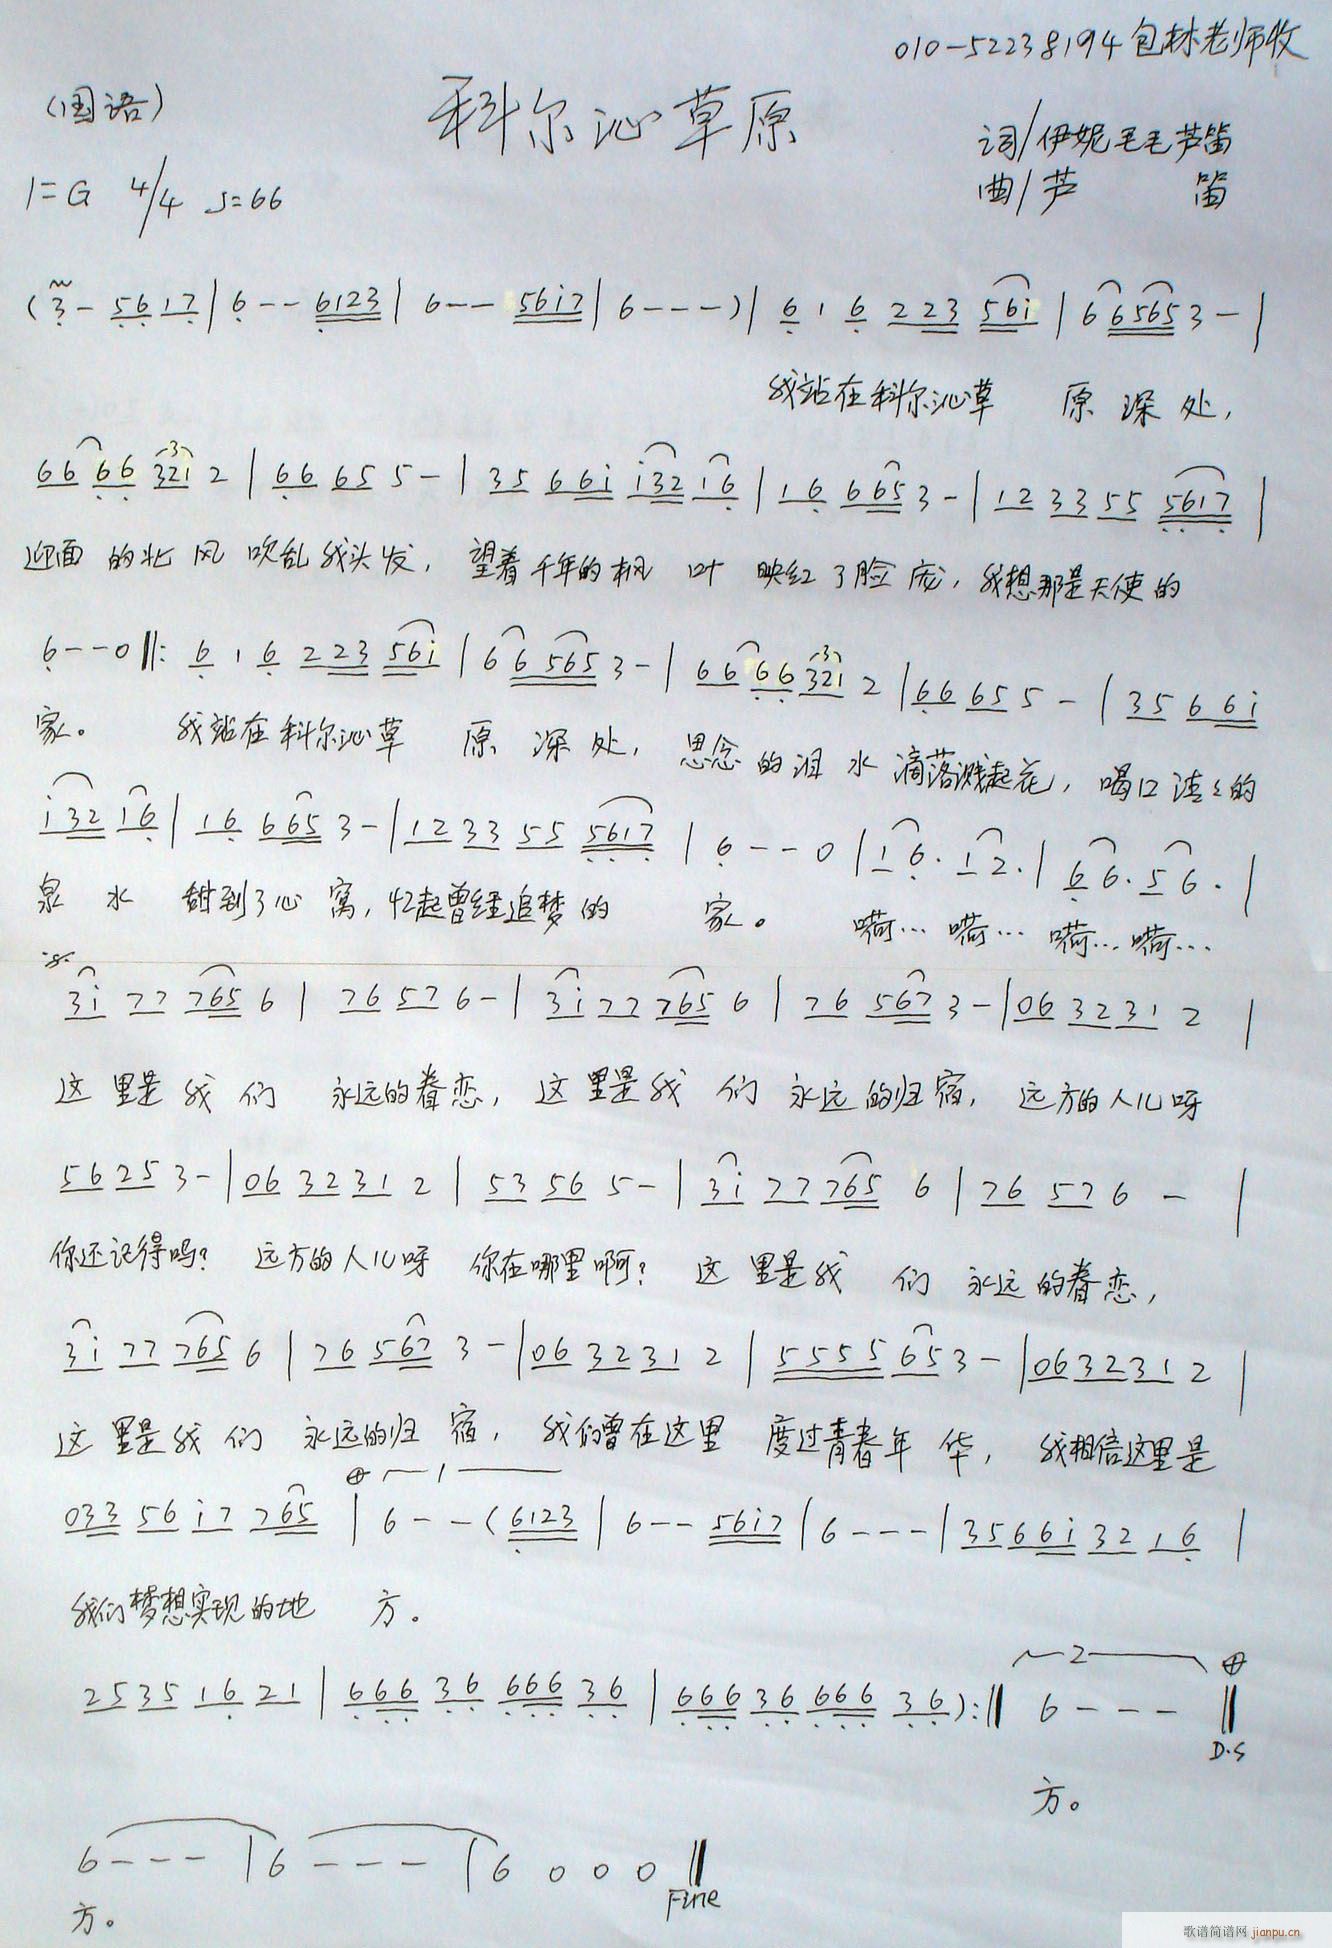 010-52238194包林老师收
(国语)
科尔沁草原
词/伊妮毛毛芦笛
曲/芦 笛
1=G 4/4 ♩=66
(3- 5617|6--6123|6--56i7|6---)|6 1 6 223 56i|6 6565 3-|
我站在科尔沁草 原 深 处,
66 66 321 2|66 65 5-|35 66i i32 16|16 665 3-|12 33 55 5617|
迎面 的北 风 吹乱我头发, 望着千年的枫 叶 映红了脸 庞, 我想那是天使的
6--0‖: 6 1 6 223 56i|6 6565 3-|66 66 321 2|66 65 5-|35 66i
家。 我站在科尔沁草 原 深 处, 思念的泪 水 滴落溅起花, 喝口清清的
i32 16|16 665 3-|12 33 55 5617|6--0|1 6. 1 2.|6 6. 5 6.|
泉 水 甜到了心 窝, 忆起曾经追梦的 家。 嗬… 嗬… 嗬… 嗬…
3i 77 765 6|76 57 6-|3i 77 765 6|76 567 3-|06 32 31 2|
这 里是 我 们 永远的眷恋, 这 里是我 们 永远的归宿, 远方的人儿呀
56 25 3-|06 32 31 2|53 56 5-|3i 77 765 6|76 57 6-|
你还记得吗? 远方的人儿呀 你在哪里啊? 这 里是我 们 永远的眷恋,
3i 77 765 6|76 567 3-|06 32 31 2|5555 65 3-|06 32 31 2|
这 里是我 们 永远的归 宿, 我们曾在这里 度过青春年 华, 我相信这里是
1
033 56 i7 765|6--(6123|6--56i7|6---|35 66i 32 16|
我们梦想实现的地 方。
2
25 35 16 21|666 36 666 36|666 36 666 36):‖ 6---‖
D.S
方。
6---|6---|6 0 0 0‖
Fine
方。
歌谱简谱网 jianpu.cn